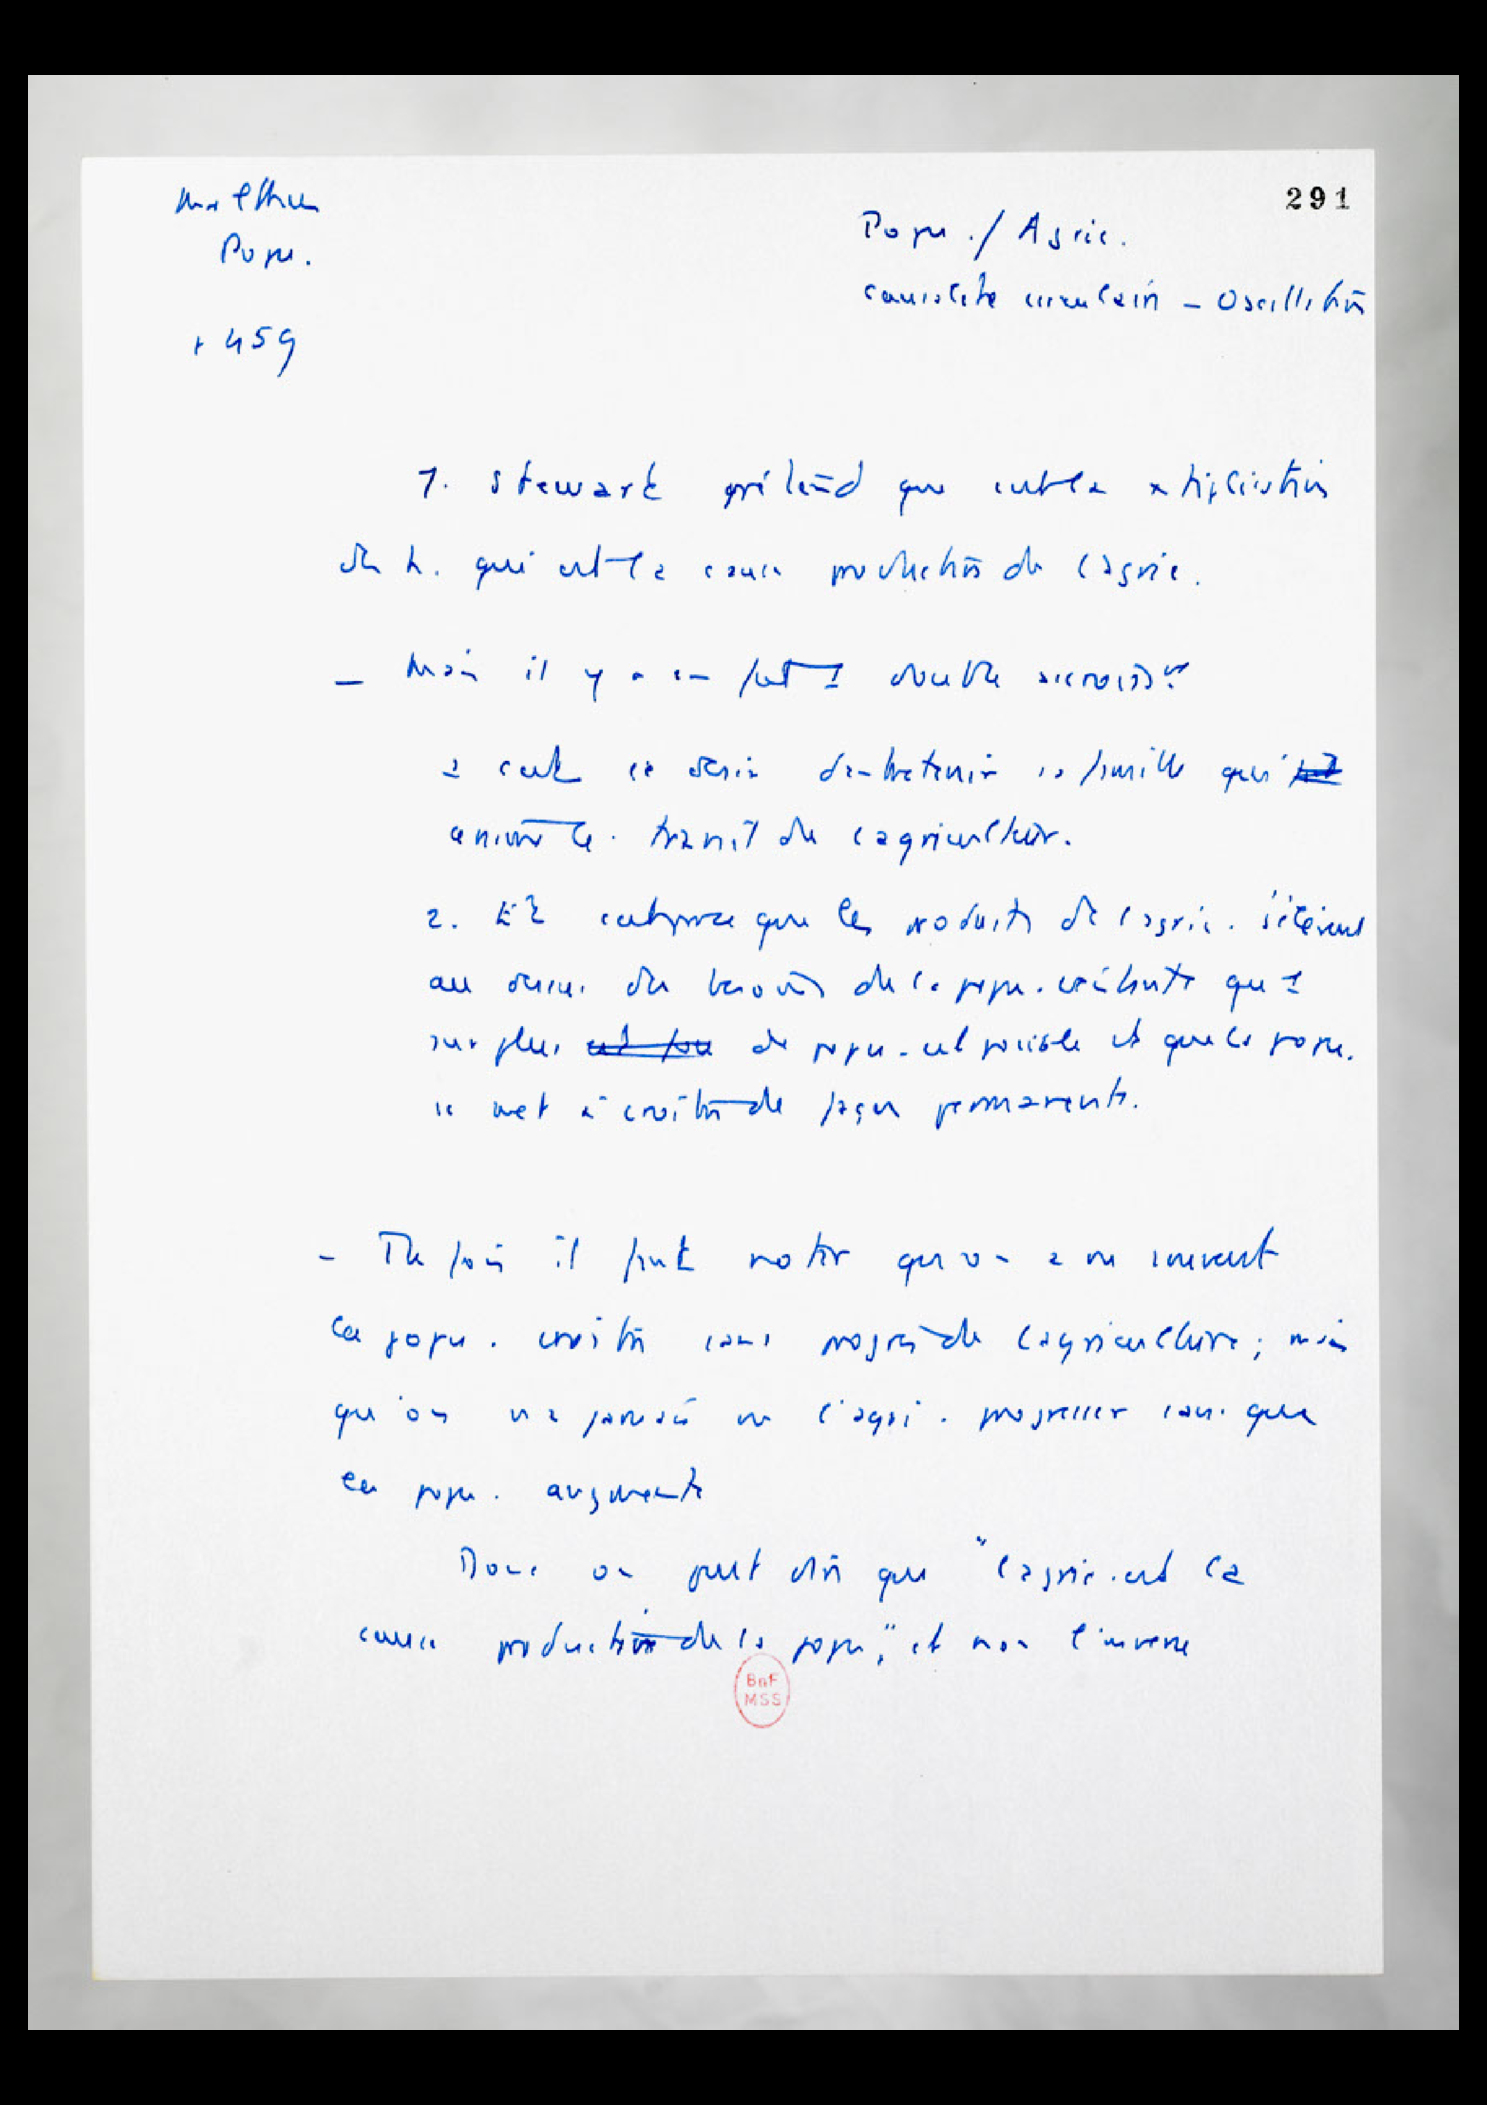 Malthus
Popu.
291
Popu. / Agric.
causalité circulaire - Oscillation
459
1. Steward prétend que c'est la multiplication
de h. qui est la cause productrice de l'agric.
- Mais il y a en fait 1 double
c'est le désir d'entretenir sa famille qui
anime le travail de l'agriculteur.
2. Et c'est parce que les produits de l'agric. s'élèvent
au dessus des besoins de la popu. existante que 1
surplus de popu. est possible et que la popu.
se met à croître de façon permanente.
- Tte fois il faut noter qu'on a vu souvent
la popu. croître sans progrès de l'agriculture; mais
qu'on n'a jamais vu l'agri. progresser sans que
la popu. augmente
Donc on peut dire que "l'agric. est la
cause productrice de la popu.", et non l'inverse
BnF
MSS